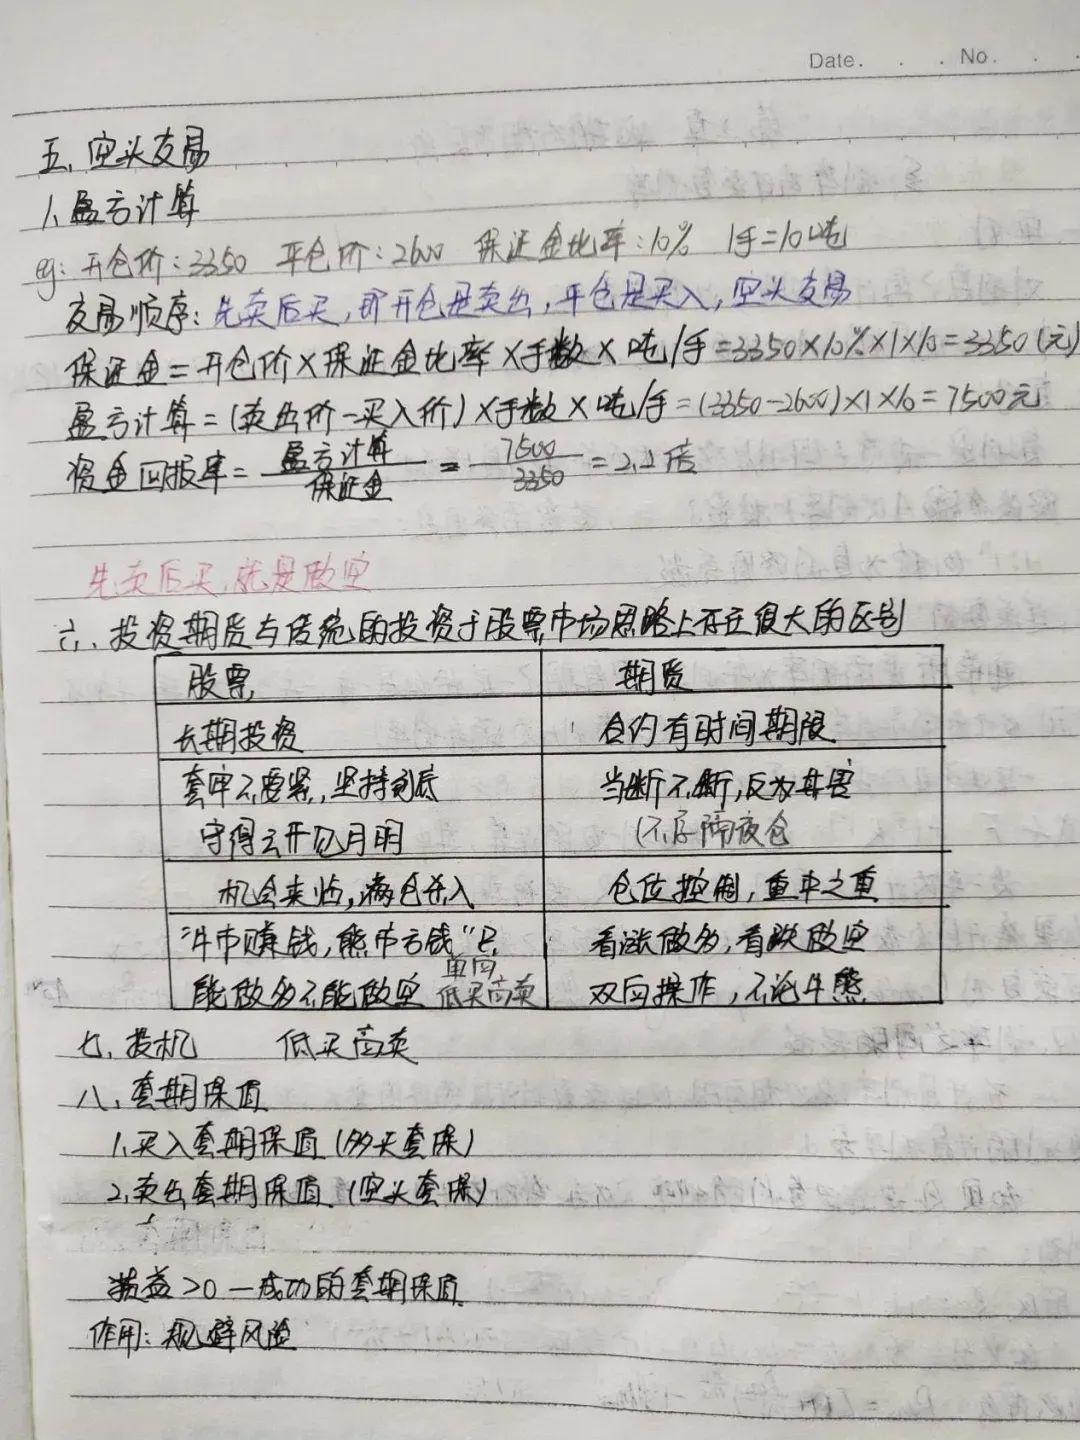 Date. . . No. . .
五、空头交易
1、盈亏计算
eg: 开仓价:3350 平仓价:2600 保证金比率:10% 1手=10吨
交易顺序: 先卖后买,即开仓是卖出,平仓是买入,空头交易
保证金=开仓价×保证金比率×手数×吨/手=3350×10%×1×10=3350(元)
盈亏计算=(卖出价-买入价)×手数×吨/手=(3350-2600)×1×10=7500元
资金回报率=盈亏计算/保证金=7500/3350=2.2倍
先卖后买,就是做空
六、投资期货与传统的投资于股票市场思路上存在很大的区别
股票 期货
长期投资 合约有时间期限
套牢不要紧,坚持到底 当断不断,反为其害
守得云开见月明 (不存隔夜仓
机会来临,满仓杀入 仓位控制,重中之重
牛市赚钱,熊市亏钱"只 看涨做多,看跌做空
单向
能做多不能做空 低买高卖 双向操作,不论牛熊
七、投机 低买高卖
八、套期保值
1.买入套期保值(多头套保)
2.卖出套期保值(空头套保)
损益>0—成功的套期保值
作用:规避风险